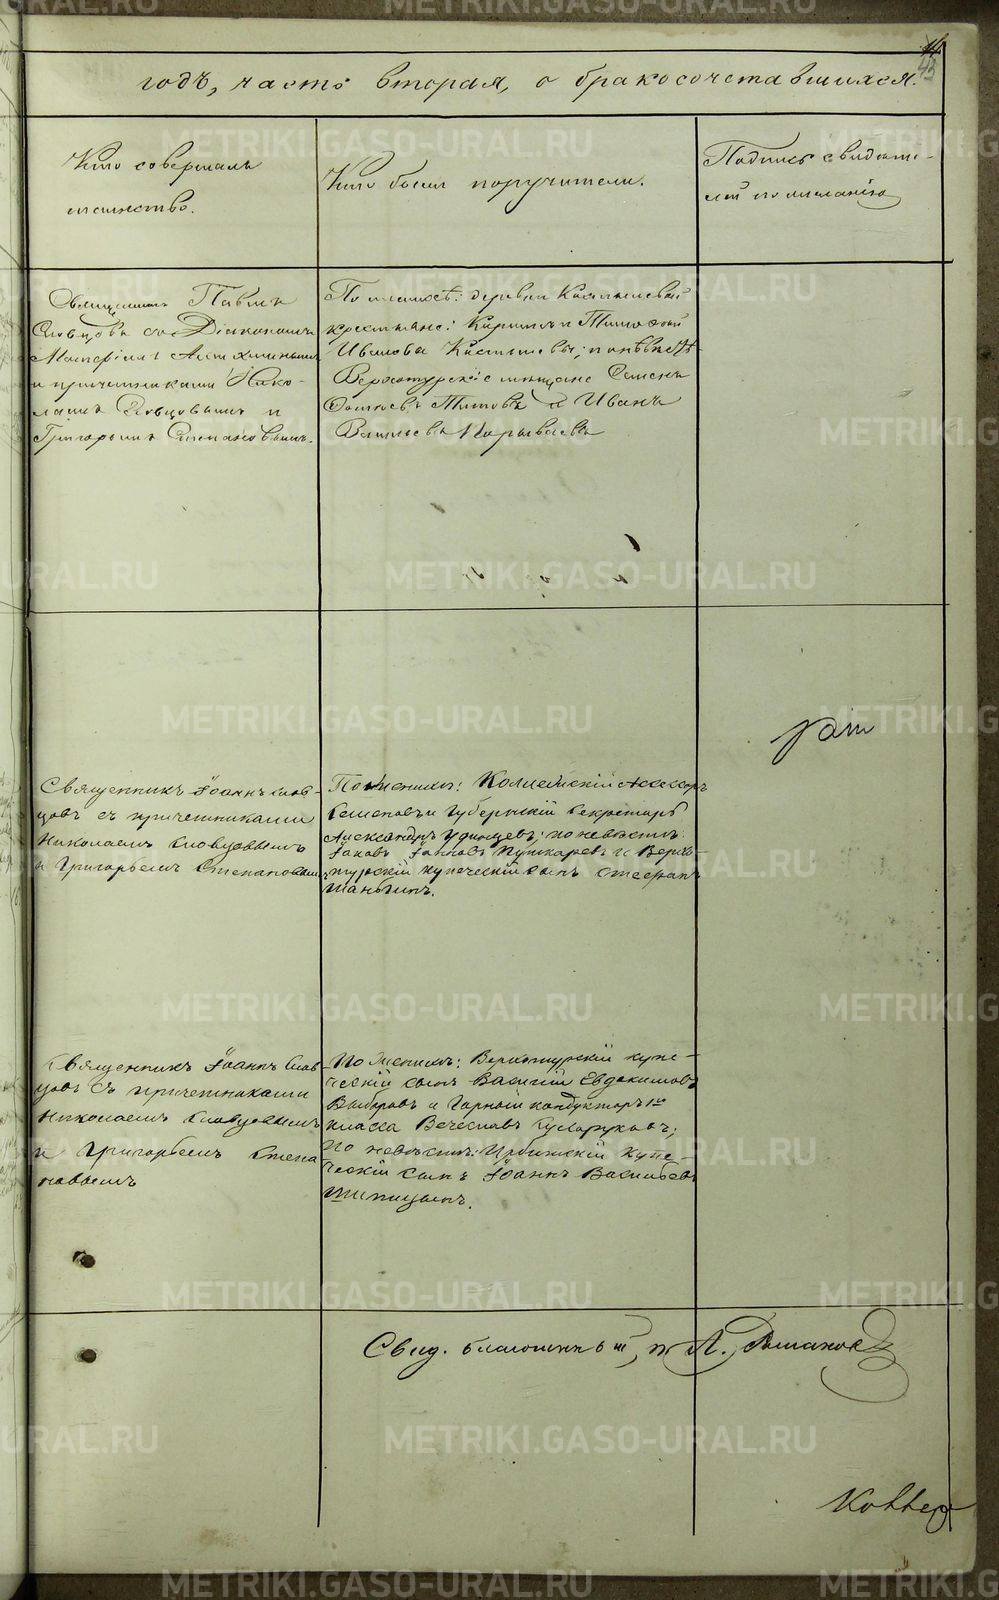 годъ, часть вторая, о бракосочетавшихся.
Кто совершалъ
таинство.
Кто были поручители.
Подпись свидѣте-
лей по желанію
Священникъ Павелъ
Словцовъ съ Діакономъ
и причетниками Нико-
лаемъ Словцовымъ и
Григорьемъ Степановымъ.
По женихѣ: деревни
крестьяне: Кириллъ и Тимофей
Ивановы; по невѣстѣ
Верхотурскіе мѣщане Семенъ
Титовъ и Иванъ
Васильевъ
Священникъ Іоаннъ Слов-
цовъ съ причетниками
Николаемъ Словцовымъ
и Григорьемъ Степановым
По женихѣ: Коллежскій Асессоръ
и Губернскій Секретарь
Александръ Удинцевъ; по невѣстѣ:
Іаковъ Пушкаревъ и Верхо-
турскій купеческій сынъ Стефанъ
Шаньгинъ.
Священникъ Іоаннъ Слов
цовъ съ причетниками
Николаемъ Словцовымъ
и Григорьемъ Степа
новымъ
По женихѣ: Верхотурскій купе-
ческій сынъ Василій Евдокимовъ
и Горный кондукторъ 1го
класса Вечеславъ
по невѣстѣ: Ирбитскій купе-
ческій сынъ Іоаннъ Васильевъ
Шипицынъ.
Свид. благочинный, п. А.
METRIKI.GASO-URAL.RU